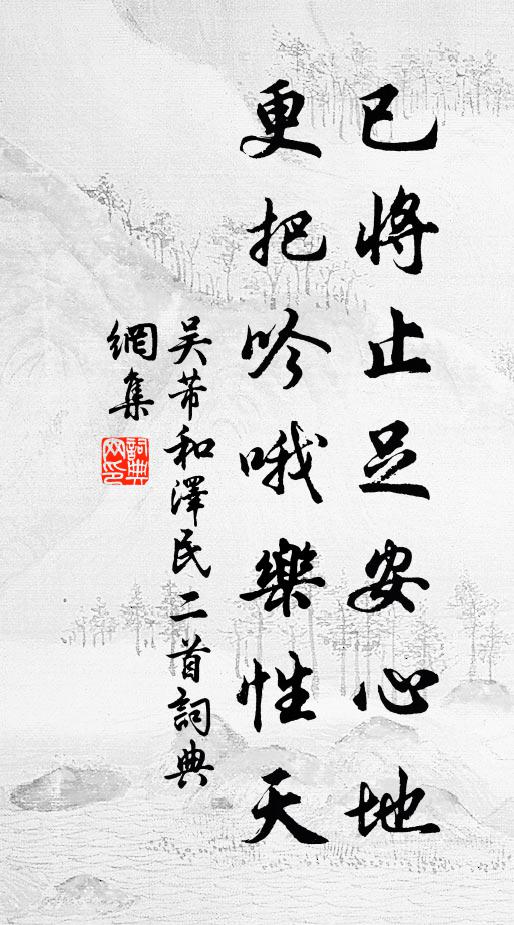 已將止足安心地
更把吟哦樂性天
吳芾和澤民二首詞典
網集
詞典網印